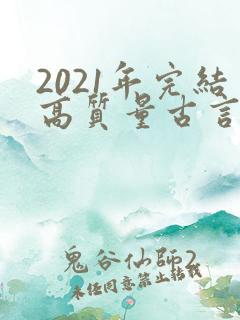 2021年完結
高質量古言
鬼谷仙師2
未经同意禁止转载